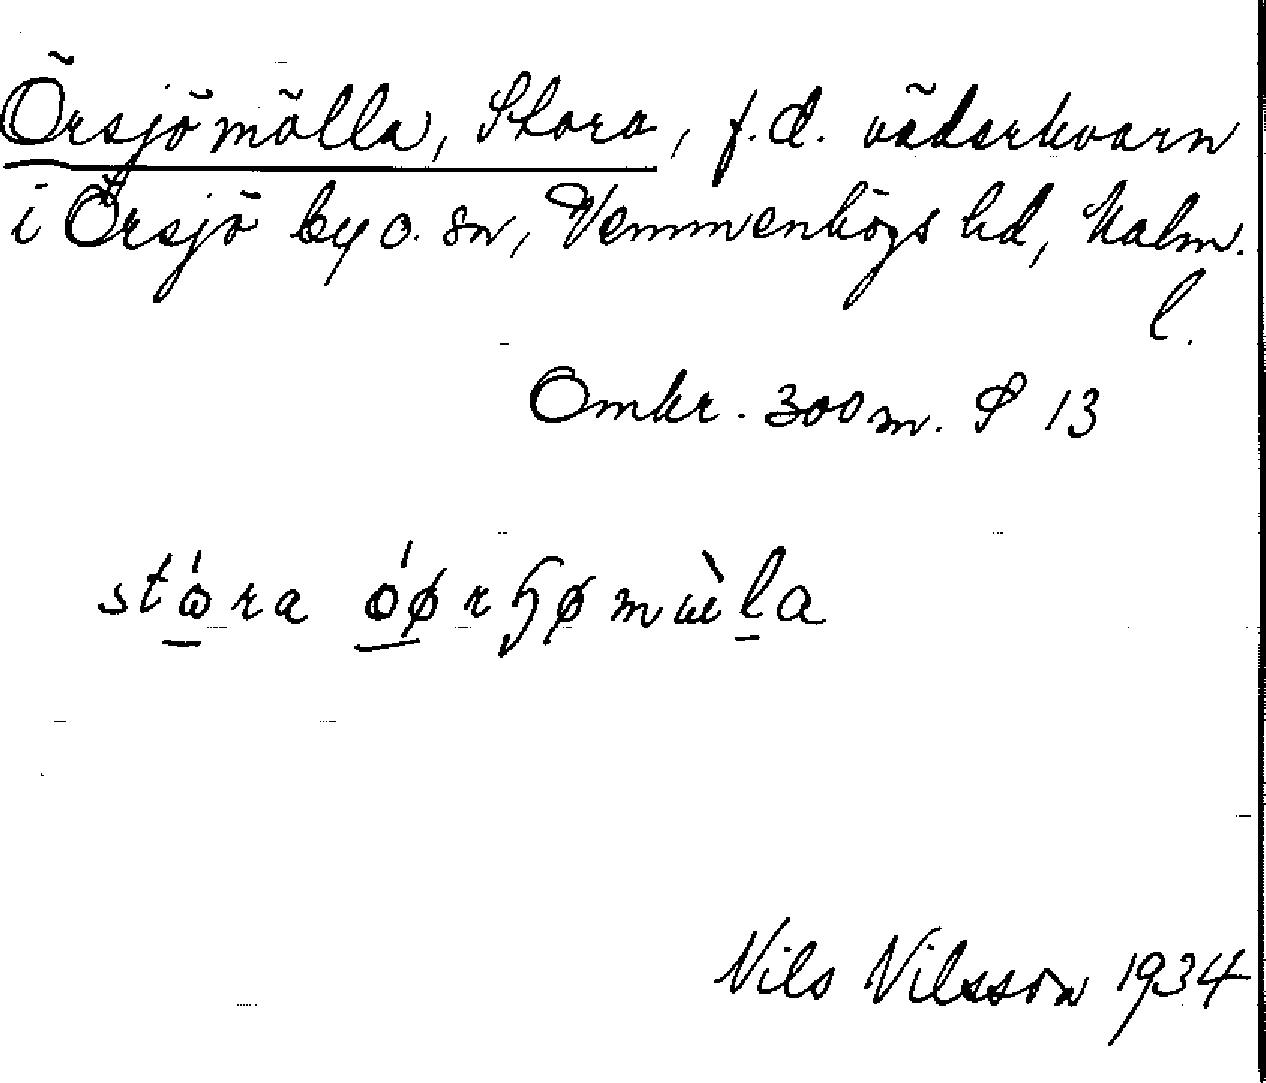 Örsjömölla, Stora, f.d. väderkvarn
i Örsjö by o. sn, Vemmenhögs hd, Malm.
l.
Omkr. 300 m. S 13
stóra
Nils Nilsson 1934